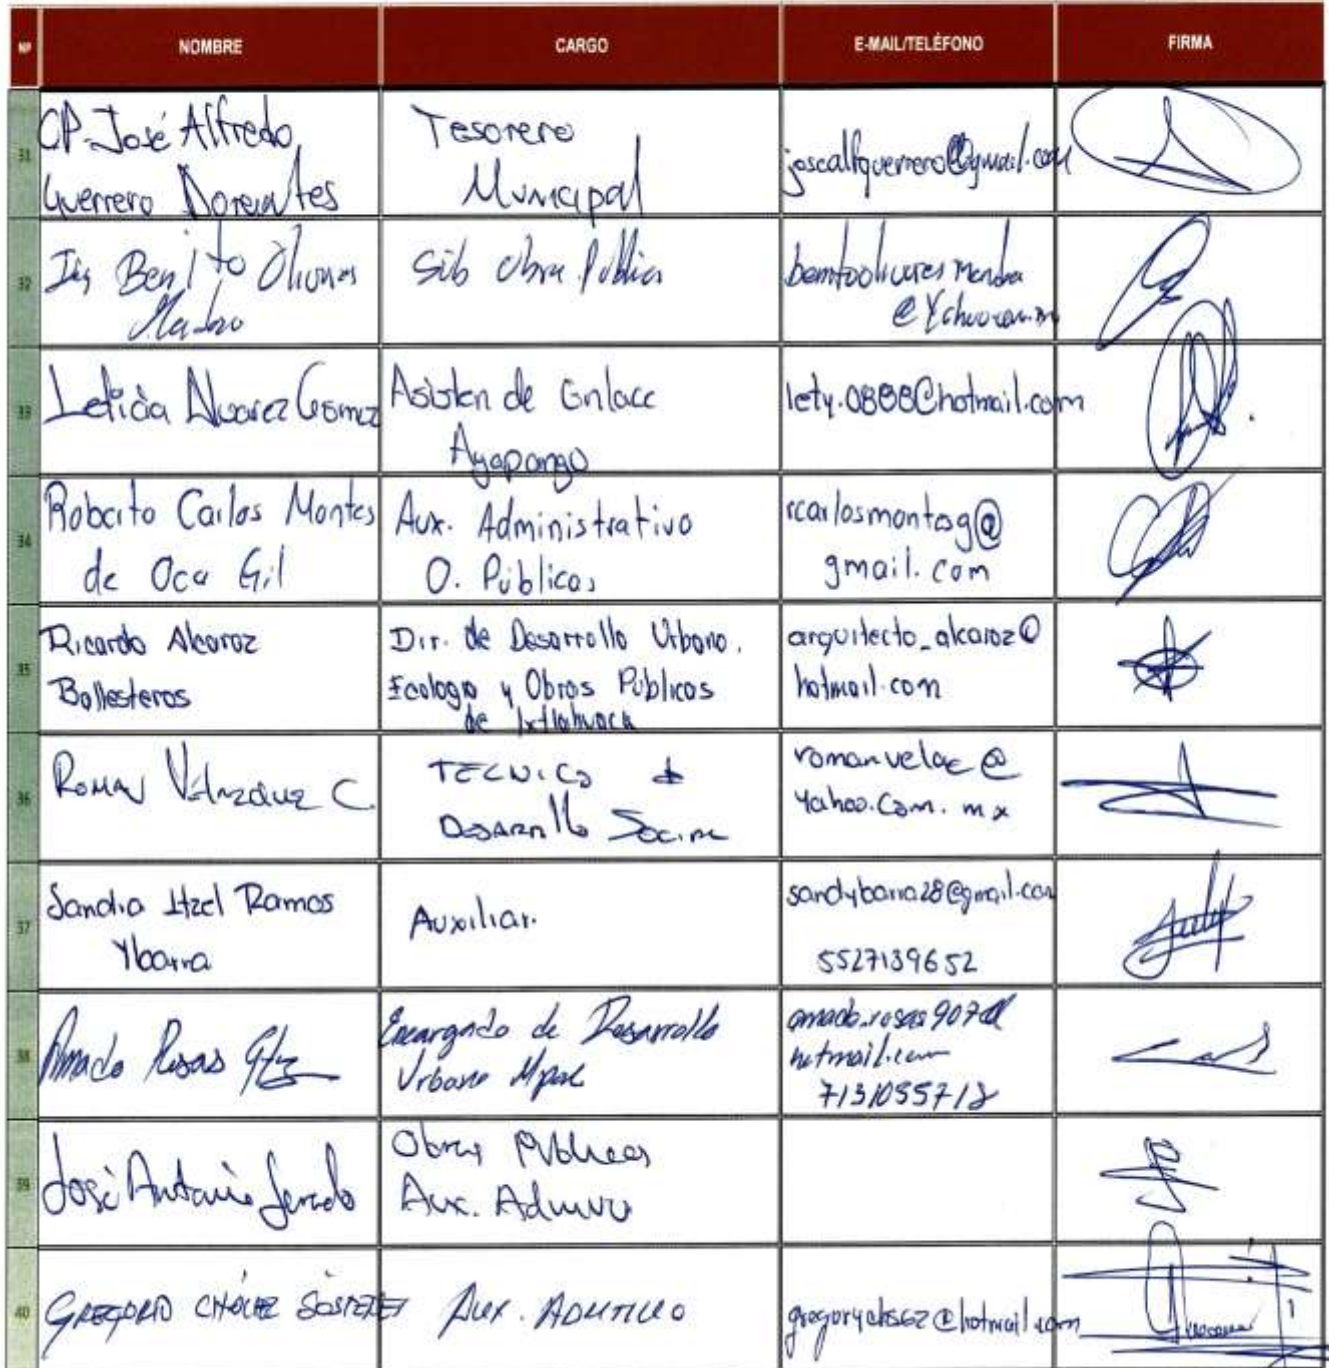 Nº NOMBRE CARGO E-MAIL/TELÉFONO FIRMA
31 CP. José Alfredo Guerrero Dorantes
Tesorero Municipal
josealfguerrero@gmail.com
32 Ing Benito Olivares
Sub Obra Publica
33 Leticia Alvarez Gomez
Asisten de Enlace Ayapango
lety.0888@hotmail.com
34 Roberto Carlos Montes de Oca Gil
Aux. Administrativo O. Públicas
rcarlosmontesg@gmail.com
35 Ricardo Alcaraz Ballesteros
Dir. de Desarrollo Urbano. Ecologia y Obras Públicas de Ixtlahuaca
arquitecto_alcaraz@hotmail.com
36 Roman Velazquez C.
TECNICO Desarrollo Social
romanvelac@yahoo.com.mx
37 Sandra Itzel Ramos Ybarra
Auxiliar.
sandybarra28@gmail.com
5527139652
38 Amado Rosas Gtz
Encargado de Desarrollo Urbano Mpal
hotmail.com
39 José Antonio
Obras Públicas Aux. Admvo
40 GREGORIO CHÁVEZ
Aux. ADMTIVO
gregorychs62@hotmail.com